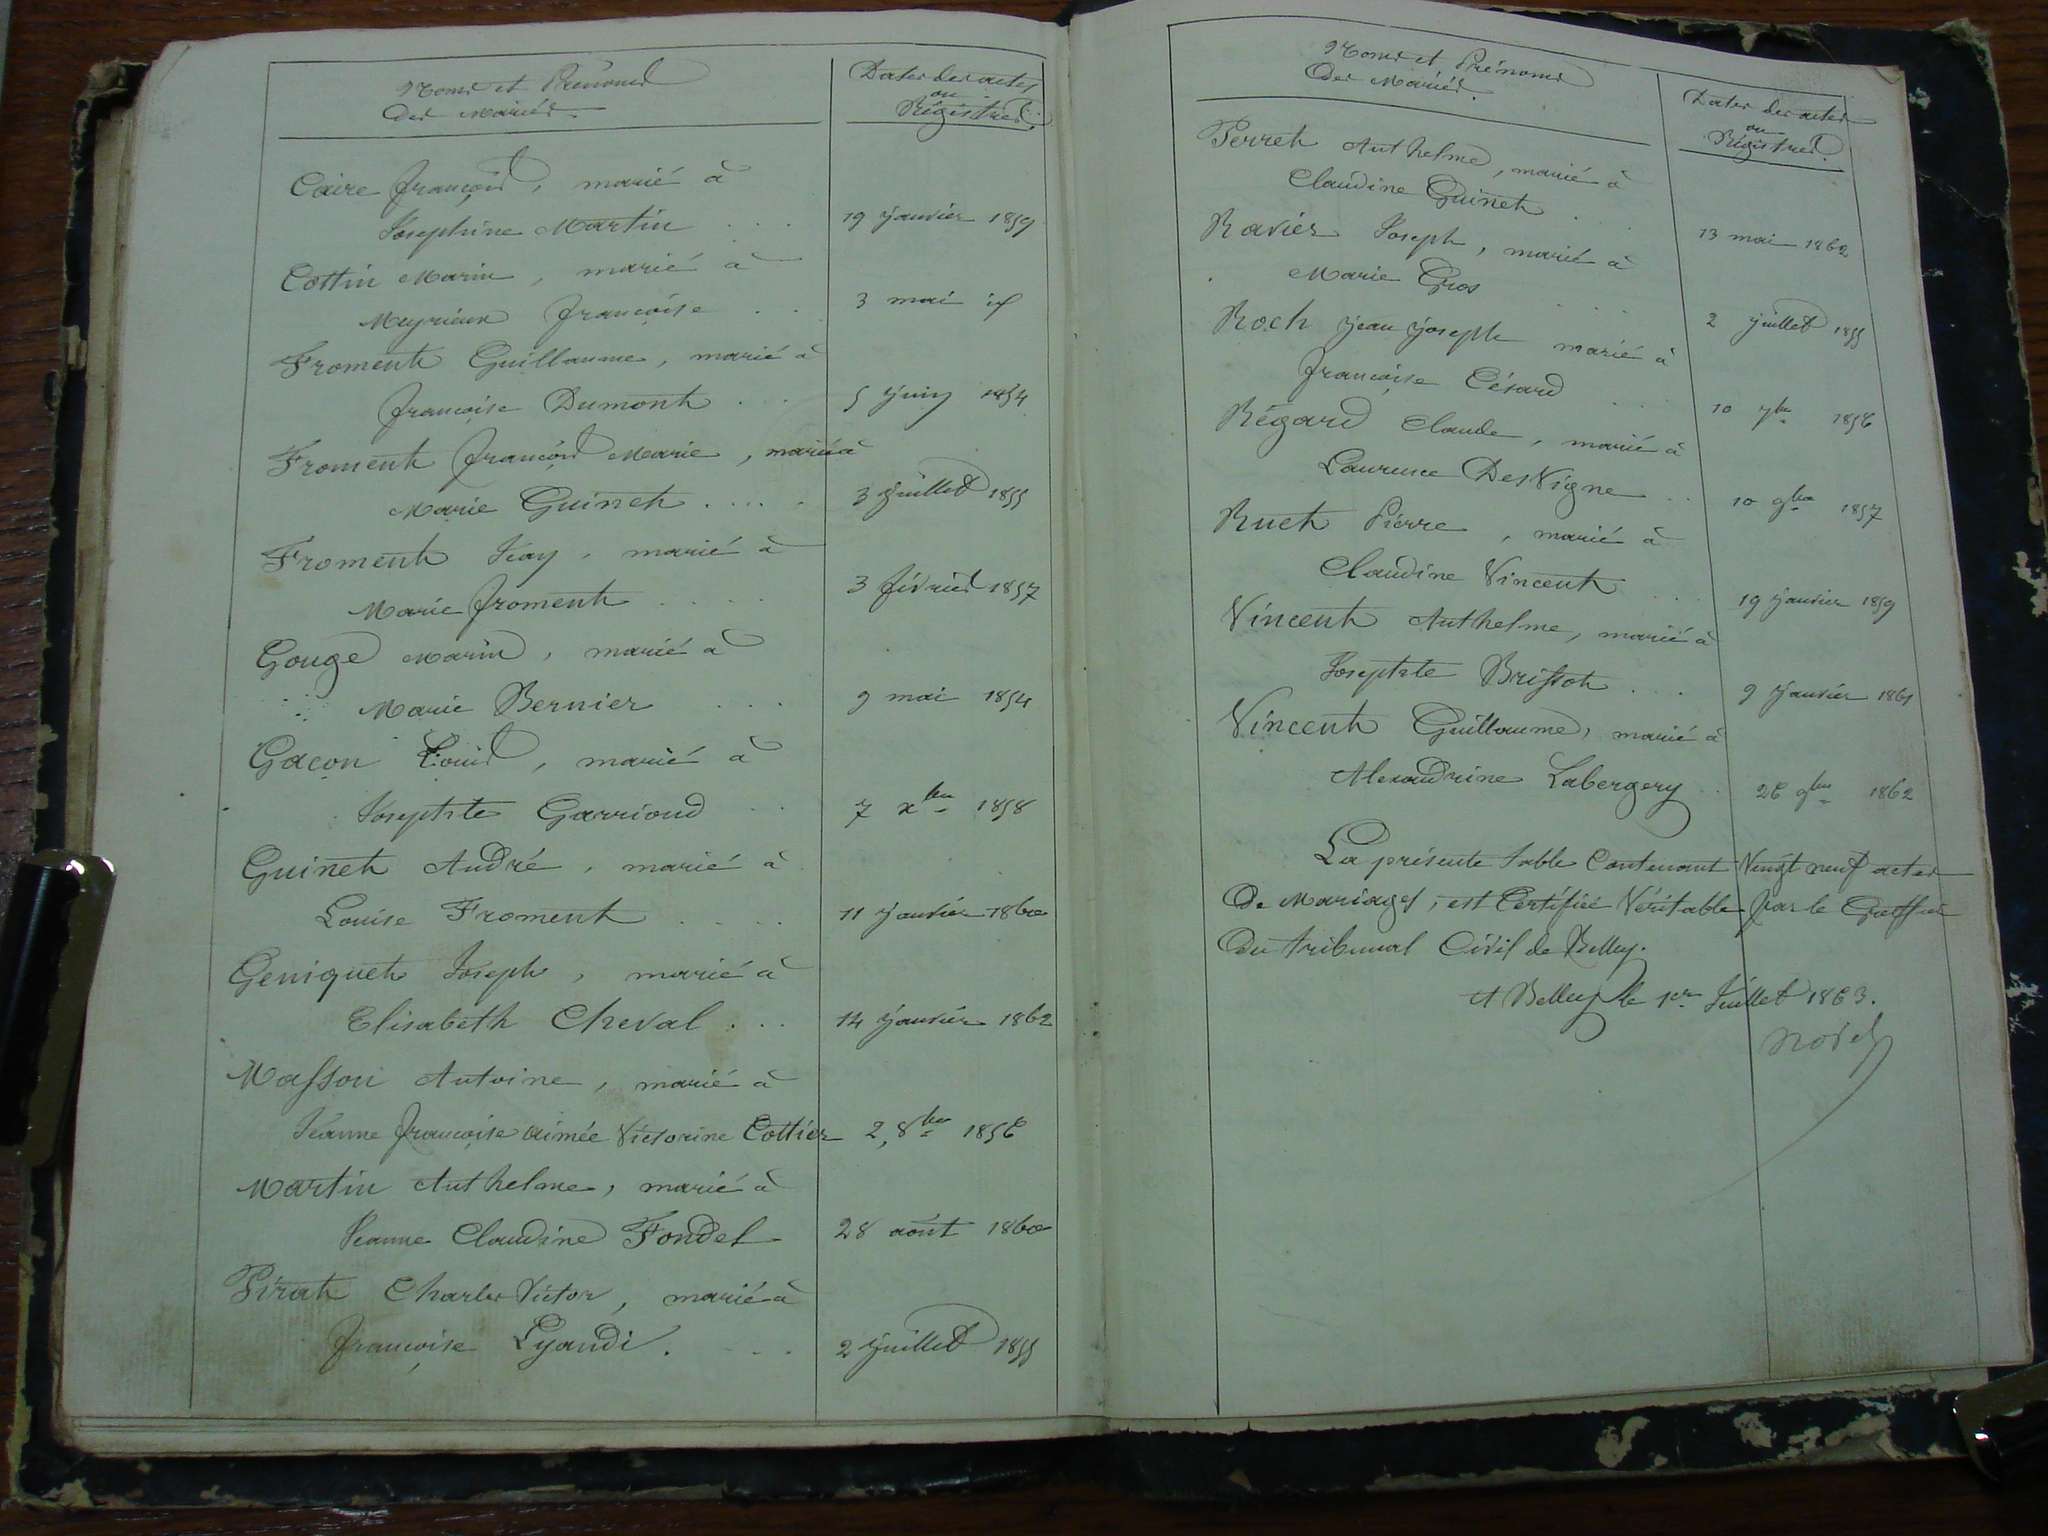 Noms et Prénoms
des Mariés.
Dates des actes
ou
Régistres.
Caire françois, marié à
Josephine Martin . . . 19 janvier 1859
Cottin Marin, marié à
Meyrieux françoise . . 3 mai id
Froment Guillaume, marié à
françoise Dumont . . 5 juin 1854
Froment françois Marie, marié à
Marie Guinet . . . . . 3 juillet 1855
Froment Jean, marié à
Marie froment . . . . 3 février 1857
Gouge Marin, marié à
Marie Bernier . . . 9 mai 1854
Gacon Louis, marié à
Josephte Garrioud . . 7 xbre 1858
Guinet André, marié à
Louise Froment . . . . 11 janvier 1860
Geniquet Joseph, marié à
Elisabeth Cheval . . . 14 janvier 1862
Masson Antoine, marié à
Jeanne françoise aimée Victorine Cottier 2, 8bre 1856
Martin Anthelme, marié à
Jeanne Claudine Fondel 28 août 1860
Pirat Charles Victor, marié à
françoise Lyaudi . . . . 2 juillet 1855
Noms et Prénoms
des Mariés.
Dates des actes
ou
Régistres.
Perret Anthelme, marié à
Claudine Guinet . . 13 mai 1862
Ravier Joseph, marié à
Marie Gros . . . 2 juillet 1855
Roch jean joseph marié à
françoise Césard . . . 10 7bre 1856
Régard Claude, marié à
Laurence DesVigne . . 10 9bre 1857
Ruet Pierre, marié à
Claudine Vincent . . . 19 janvier 1859
Vincent Anthelme, marié à
Josephte Brisson . . . 9 janvier 1861
Vincent Guillaume, marié à
Alexandrine Labergery . 26 9bre 1862
La présente table Contenant Vingt neuf actes
de Mariages, est Certifiée Véritable par le Greffier
du tribunal Civil de Belley.
A Belley le 1er Juillet 1863.